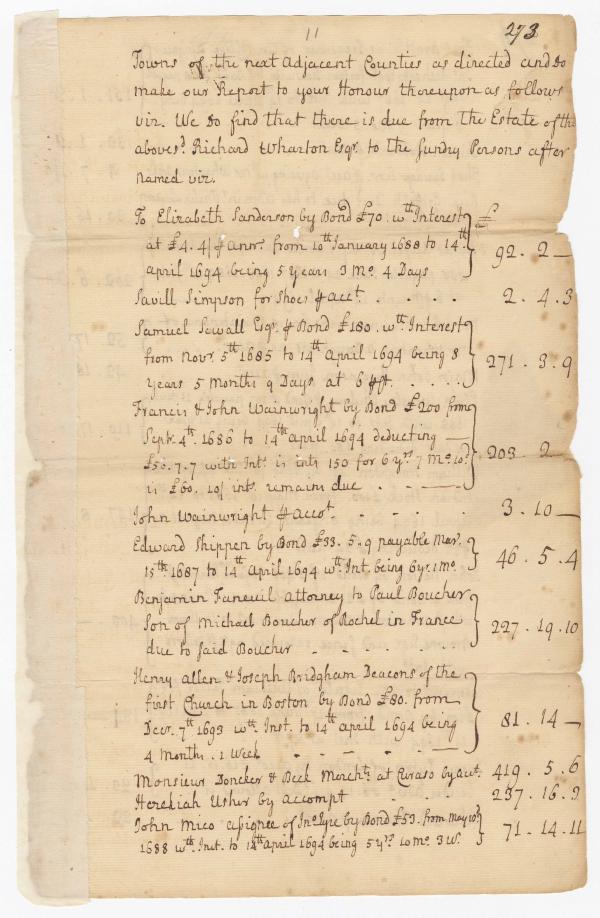 11 273
Towns of the next Adjacent Counties as directed and do
make our Report to your Honour thereupon as follows
viz. We do find that there is due from the Estate of the
aboves.d Richard Wharton Esqr. to the sundry Persons after
named viz.
To Elizabeth Sanderson by Bond £70. wth Interest
at £4. 4/ ⅌ Annr. from 10th January 1688 to 14th
april 1694 being 5 Years 3 Mo. 4 Days 92. 2 —
Savill Simpson for Shoes ⅌ acct. . . . . 2. 4. 3
Samuel Sewall Esqr. ⅌ Bond £180. wth Interest
from Novr. 5th 1685 to 14th April 1694 being 8
Years 5 Months 9 Days at 6 ⅌ Ct. . . . . 271. 3. 9
Francis & John Wainwright by Bond £200 from
Septr. 4th. 1686 to 14th april 1694 deducting —
£50. 7. 7 with Intt. is ints 150 for 6 yrs 7 Mo. 10d.
is £60. 10/ ints. remains due . . — . — 203. 2 —
John Wainwright ⅌ Accot. . . . . 3. 10 —
Edward Shippen by Bond £33. 5. 9 payable Mar.
15th 1687 to 14th April 1694 wth Int. being 6 yr. 1 Mo. 46. 5. 4
Benjamin Faneuil attorney to Paul Boucher
Son of Michael Boucher of Rochel in France
due to said Boucher . . . . . 227. 19. 10
Henry Allen & Joseph Bridgham Deacons of the
first Church in Boston by Bond £80. from
Decr. 7th 1693 wth. Inst. to 14th april 1694 being
4 Months. 1 Week . . . . . 81. 14 —
Monsieur Doncker & Beck Mercht. at Curaso by acct. 419. 5. 6
Hezekiah Usher by accompt . . . . 237. 16. 9
John Mico assignee of Jno. Eyre by Bond £53. from May 10th
1688 wth Inst. to 14th april 1694 being 5 yrs. 10 mo. 3 W. 71. 14. 11